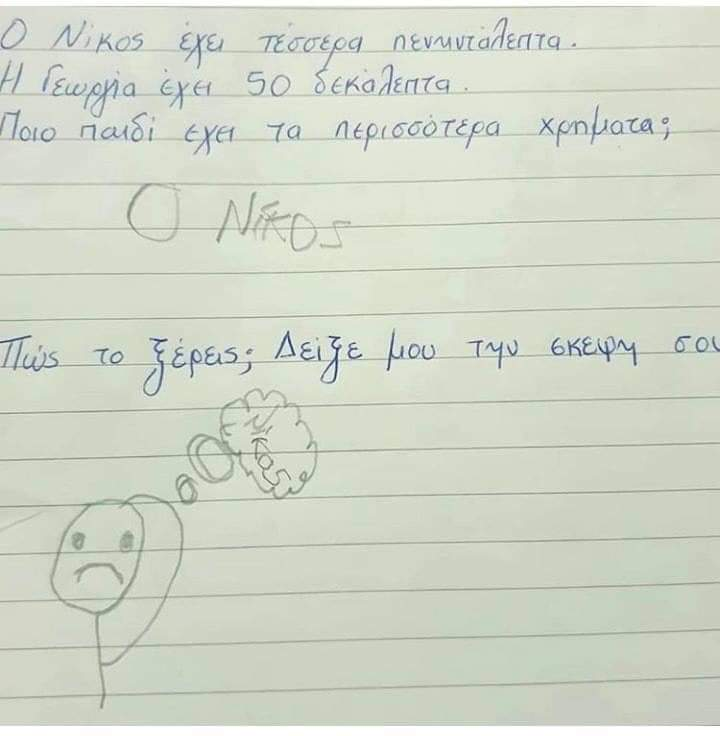 Ο Νίκος έχει τέσσερα πενηντάλεπτα.
Η Γεωργία έχει 50 δεκάλεπτα.
Ποιο παιδί έχει τα περισσότερα χρήματα;
Ο Νίκος
Πώς το ξέρεις; Δείξε μου την σκέψη σου
Νίκος